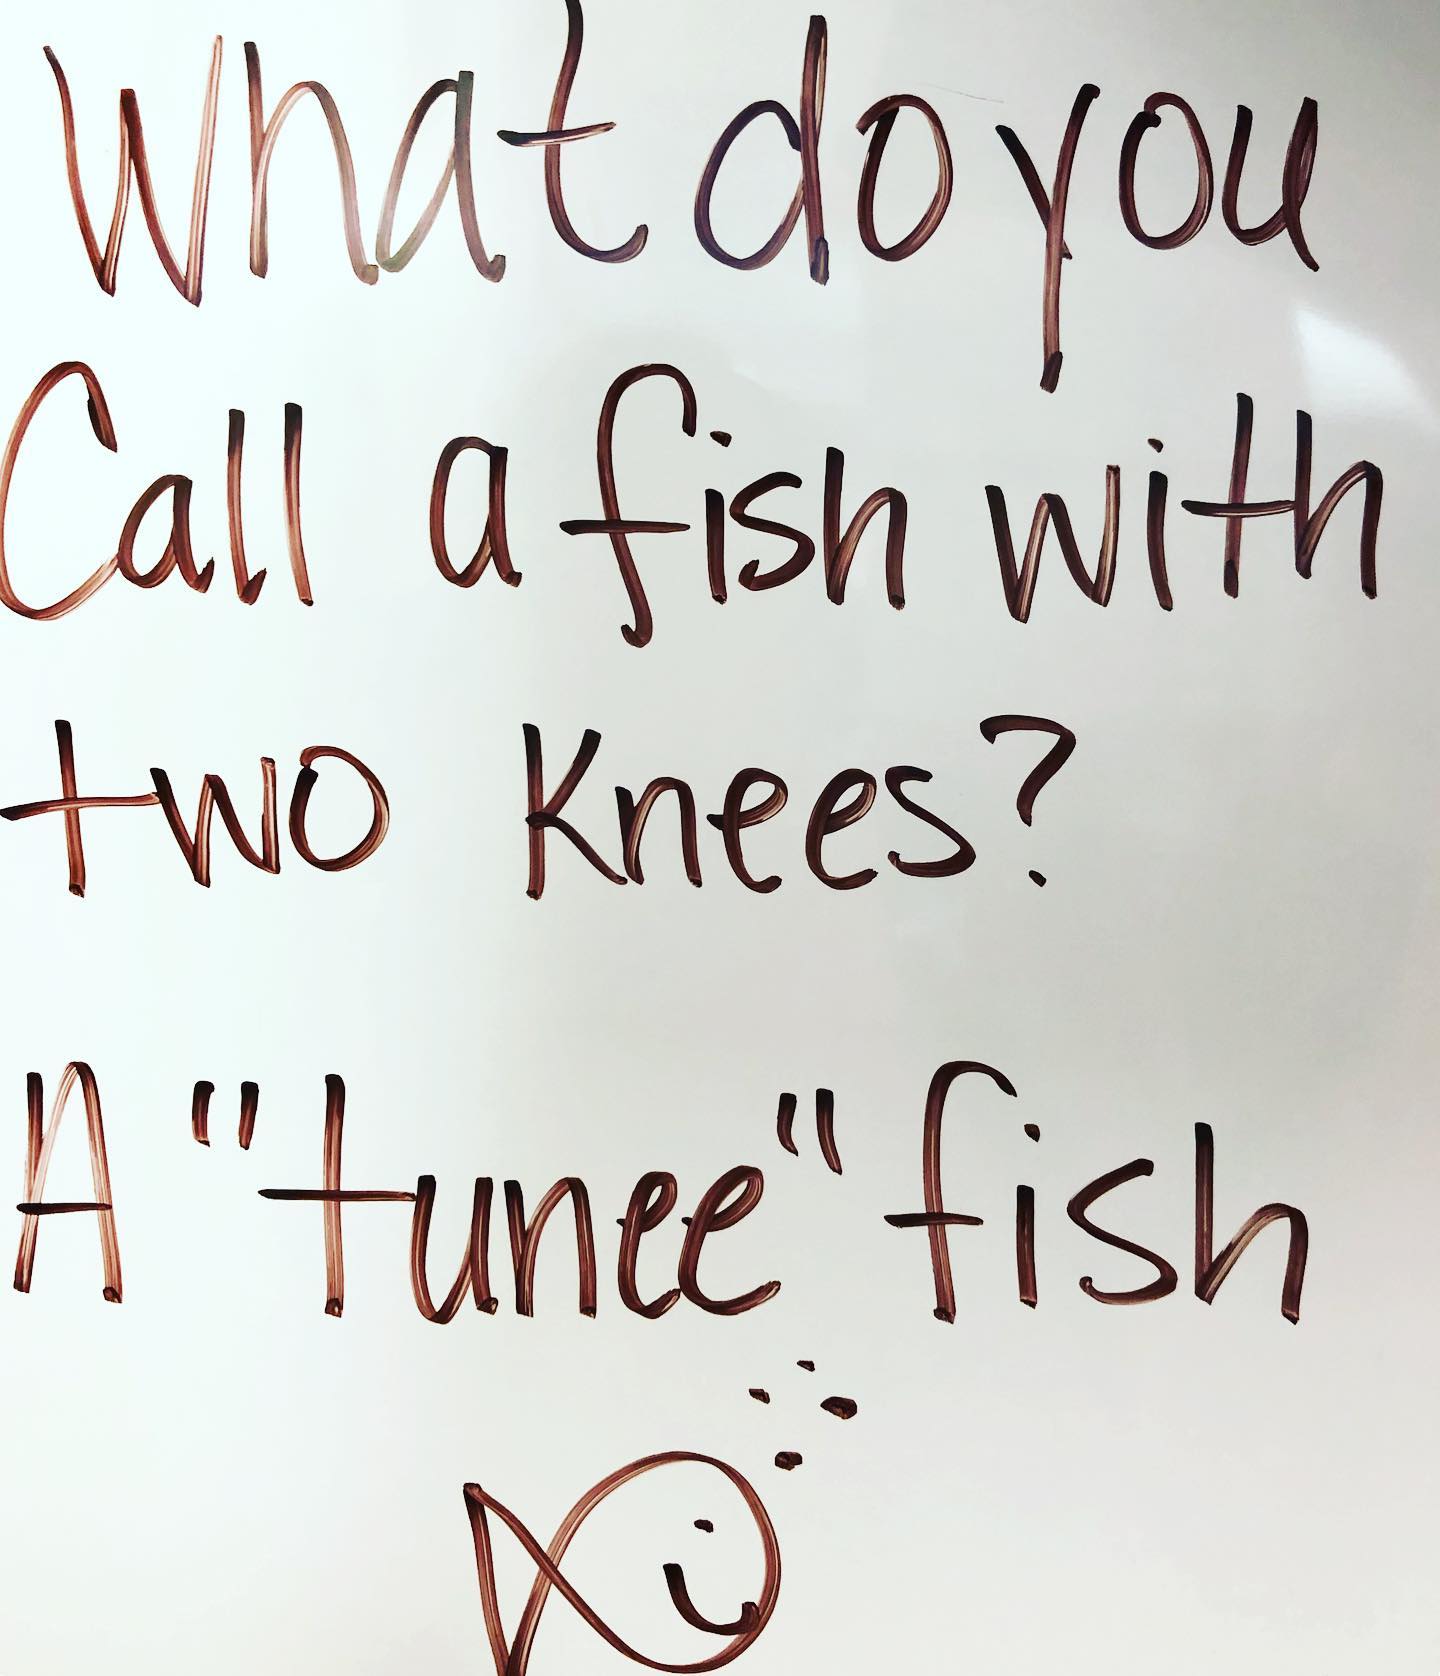 What do you
Call a fish with
two knees?
A "tunee" fish